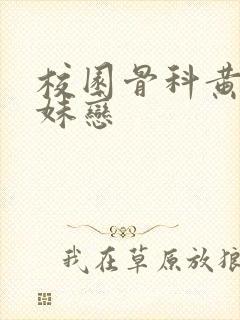 校園骨科黃
妹戀
我在草原放狼